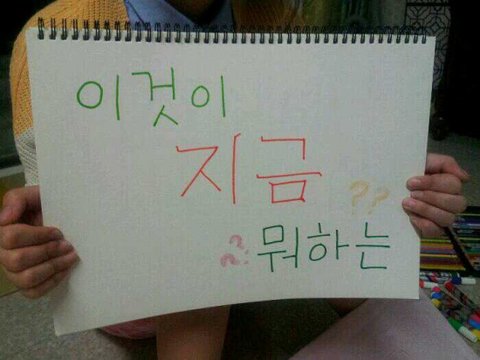 이것이
지금
??
?? 뭐하는